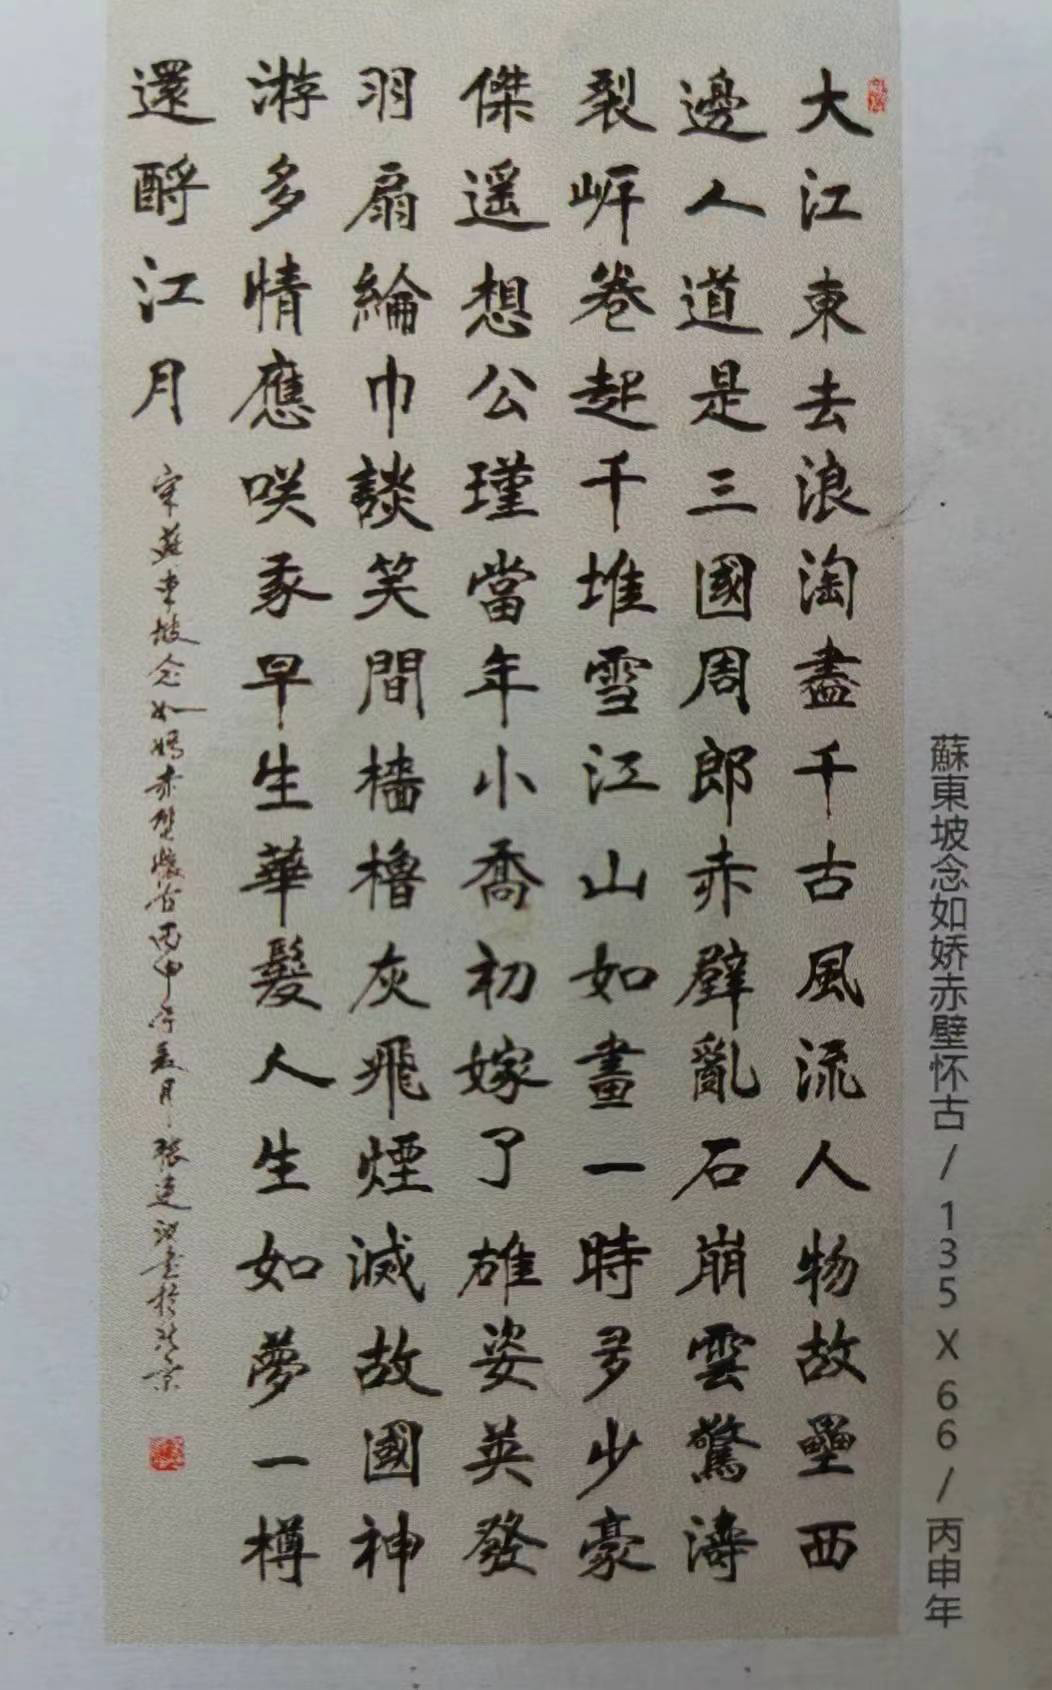 大江東去浪淘盡千古風流人物故壘西
邊人道是三國周郎赤壁亂石崩雲驚濤
裂岍卷起千堆雪江山如畫一時多少豪
傑遥想公瑾當年小喬初嫁了雄姿英發
羽扇綸巾談笑間檣櫓灰飛煙滅故國神
游多情應咲我早生華髮人生如夢一樽
還酹江月
宋蘇東坡念如嬌赤壁懷古丙申年夏月張建
蘇東坡念如娇赤壁怀古/135X66/丙申年